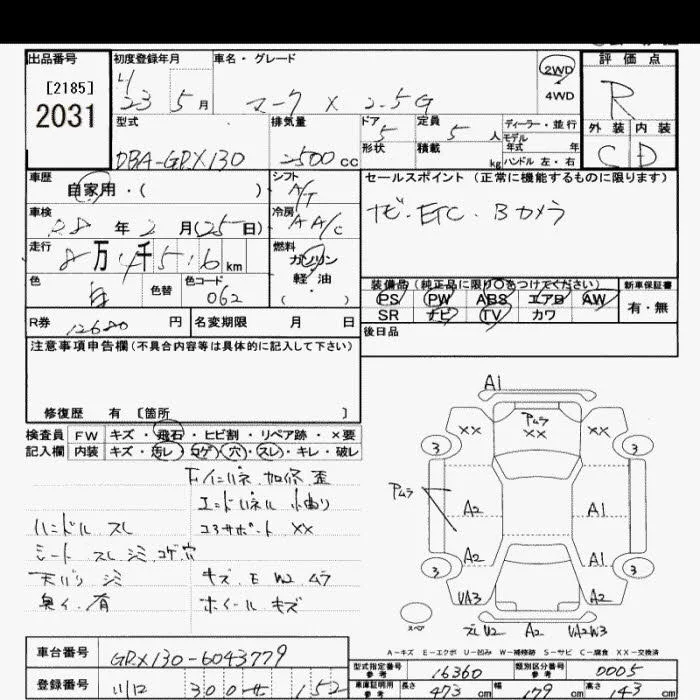 出品番号
[2185]
2031
初度登録年月
23 5 月
車名・グレード
マーク X 2.5G
2WD
4WD
評価点
R
外装 内装
C D
型式
DBA-GRX130
排気量
2500 cc
ドア
5
定員
5 人
形状
積載
kg
ディーラー・並行
モデル
年式 年
ハンドル 左・右
車歴
自家用・( )
シフト
A/T
車検
28 年 2 月 (25 日)
冷房
AA/C
走行
8 万 4 千 5 1 6 km
燃料
ガソリン
軽・油
( ・ )
色
白
色替
色コード
062
R券 12680 円
名変期限 月 日
セールスポイント(正常に機能するものに限ります)
ナビ. ETC. Bカメラ
装備品(純正品に限り○をつけてください)
PS PW ABS エアB AW
SR ナビ TV カワ
新車保証書
有・無
後日品
注意事項申告欄(不具合内容等は具体的に記入して下さい)
修復歴 有 〔箇所 〕
検査員 FW キズ・飛石・ヒビ割・リペア跡・×要
記入欄 内装 キズ・汚レ・コゲ・穴・スレ・キレ・破レ
Fインパネ 加修 歪
エンドパネル 小曲り
ハンドル スレ
コアサポート XX
シート スレ シミ コゲ穴
天バリ シミ
キズ. E W2 ムラ
臭イ. 有
ホイール キズ
A1
XX
ムラ
XX
XX
3
3
ムラ
A2
A1
A2
A1
3
3
UA3
A2
スペア
ズレ U2
A2
UA2W3
A-キズ E-エクボ U-凹み W-補修跡 S-サビ C-腐食 XX-交換済
車台番号
GRX130-6043779
登録番号
300 せ 152
型式指定番号
参考
16360
類別区分番号
参考
0005
車庫証明用
参考
長さ 473 cm 幅 179 cm 高さ 143 cm